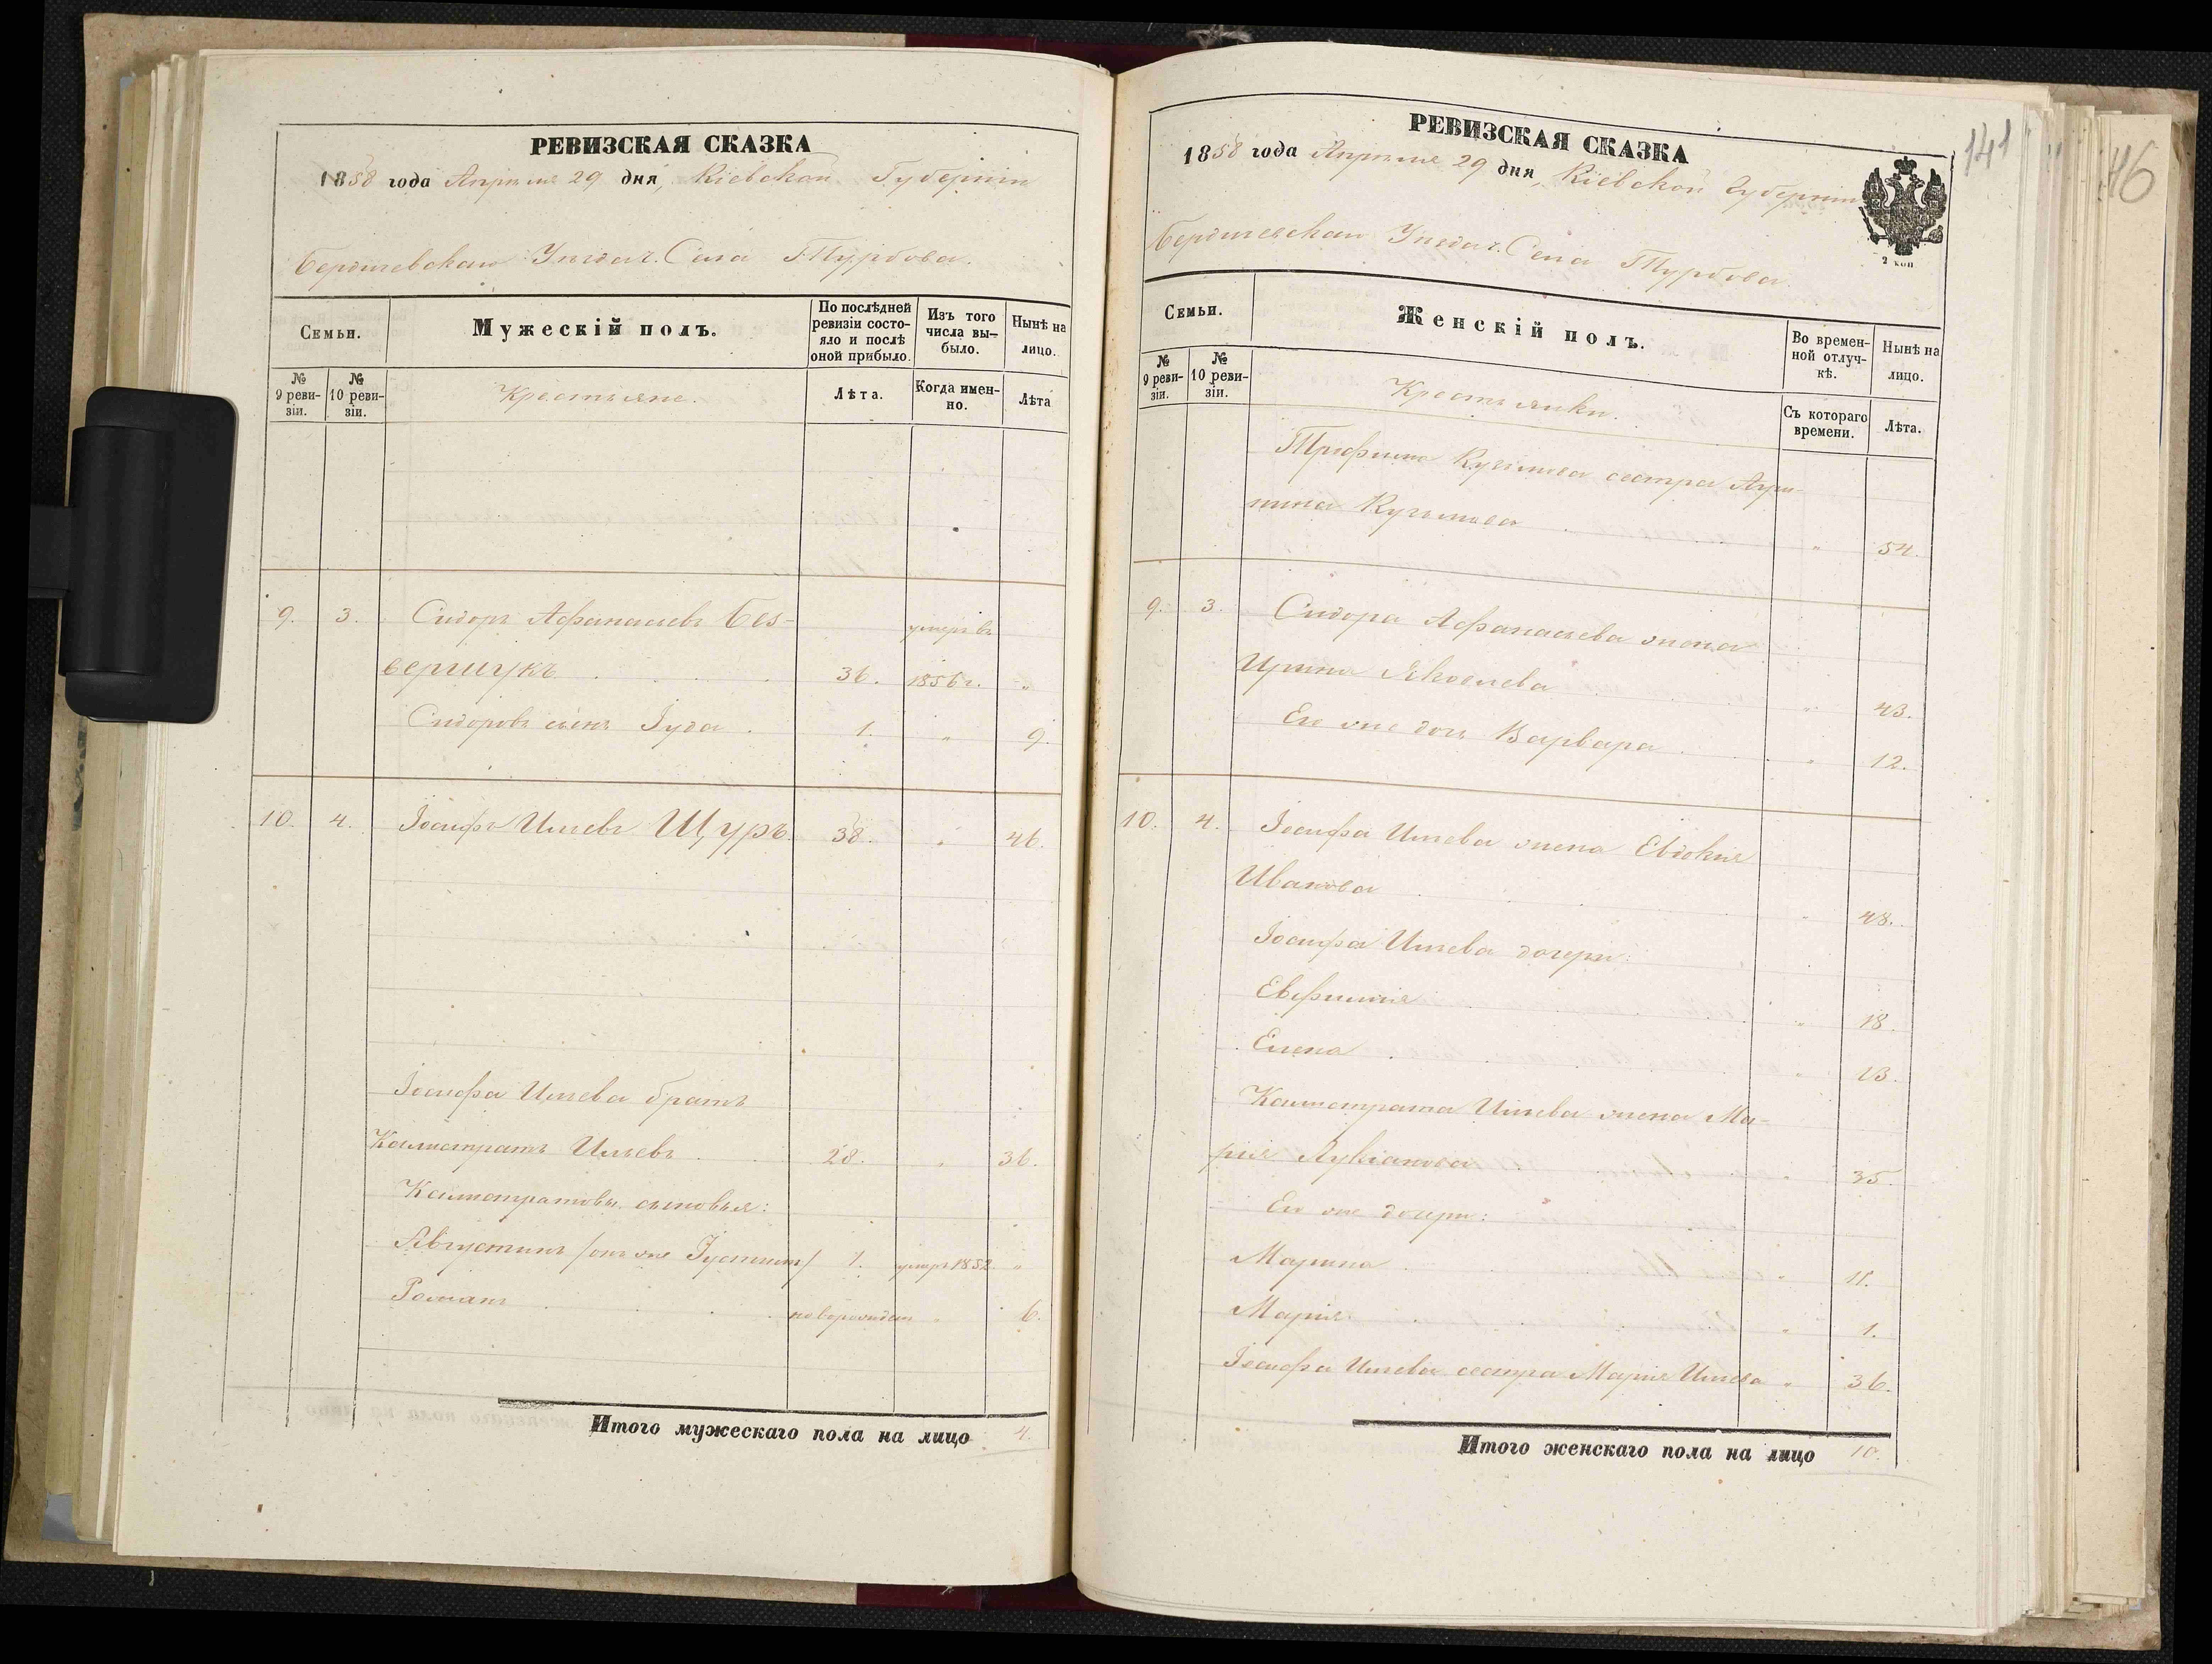 РЕВИЗСКАЯ СКАЗКА
1858 года Апреля 29 дня, Кіевской Губерніи
Бердичевскаго Уезда. Села Турбова.
Семьи.
Мужескій полъ.
По послѣдней ревизіи состояло и послѣ оной прибыло.
Изъ того числа выбыло.
Нынѣ на лицо.
№ 9 ревизіи.
№ 10 ревизіи.
Крестьяне.
Лѣта.
Когда именно.
Лѣта
9. 3. Сидоръ Афанасьевъ Без- умеръ въ
вершукъ 36. 1856 г. "
Сидоровъ сынъ Іуда 1. " 9.
10. 4. Іосифъ Ильевъ Щуръ. 38. " 46.
Іосифа Ильева братъ
Калистратъ Ильевъ 28. " 36.
Калистратовы сыновья:
Августинъ /онъ же Іустинъ/ 1. умеръ 1852 "
Романъ новорожден " 6.
Итого мужескаго пола на лицо 4.
РЕВИЗСКАЯ СКАЗКА
1858 года Апреля 29 дня, Кіевской Губерніи
2 коп
141
46
Бердичевскаго Уезда. Села Турбова.
Семьи.
Женскій полъ.
Во временной отлучкѣ.
Нынѣ на лицо.
№ 9 ревизіи.
№ 10 ревизіи.
Крестьянки.
Съ котораго времени.
Лѣта.
Кузьмова сестра
Кузьмова " 54.
9. 3. Сидора Афанасьева жена
Ирина Яковлева " 43.
Его же дочь Варвара " 12.
10. 4. Іосифа Ильева жена Евдокия
Иванова " 48.
Іосифа Ильева дочери:
Евфимия " 18.
Елена " 13.
Калистрата Ильева жена Ма-
рия Лукіанова " 35.
Его же дочери:
Марина " 11.
Мария " 1.
Іосифа Ильева сестра Мария Ильева " 36.
Итого женскаго пола на лицо 10.